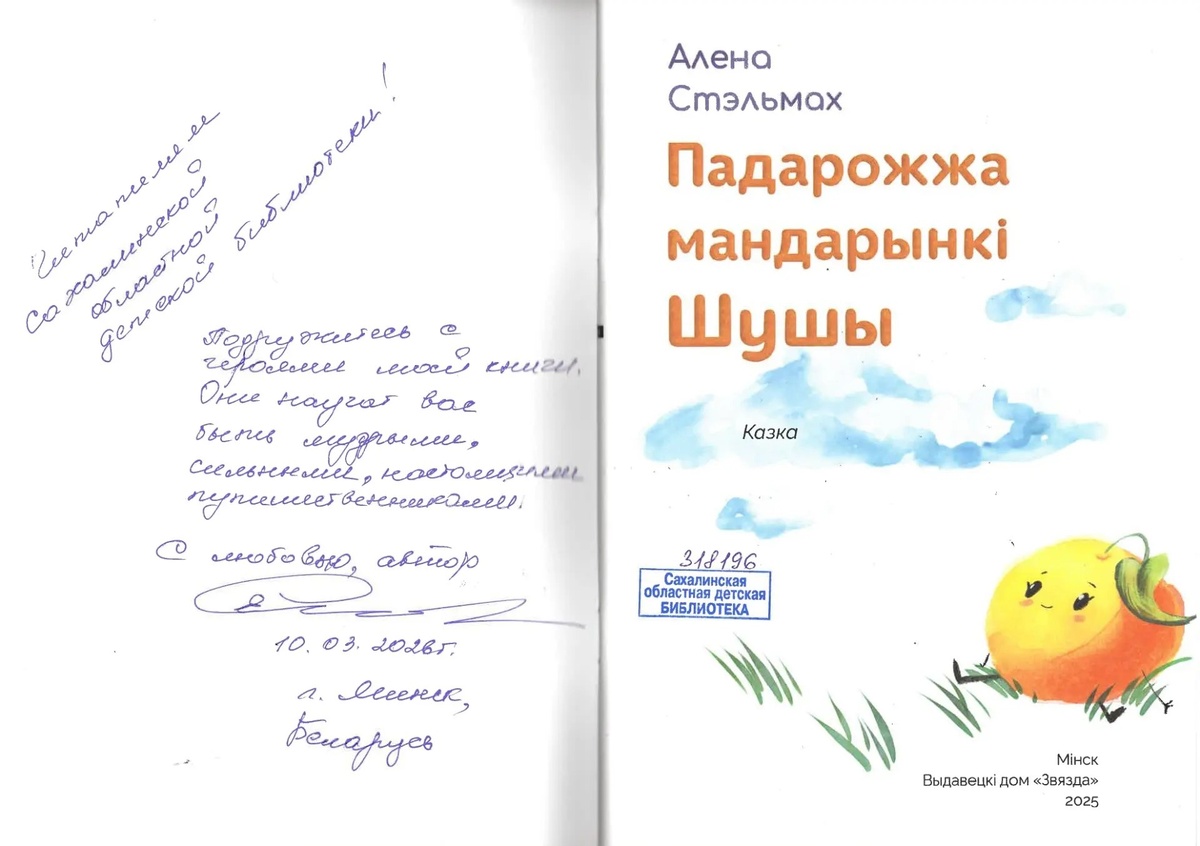 Читателям
Сахалинской
областной
детской библиотеки!
Подружитесь с
героями моей книги.
Они научат вас
быть мудрыми,
сильными, настоящими
путешественниками.
С любовью, автор
10.03.2026г.
г. Минск,
Беларусь
Алена
Стэльмах
Падарожжа
мандарынкі
Шушы
Казка
318196
Сахалинская
областная детская
БИБЛИОТЕКА
Мінск
Выдавецкі дом «Звязда»
2025